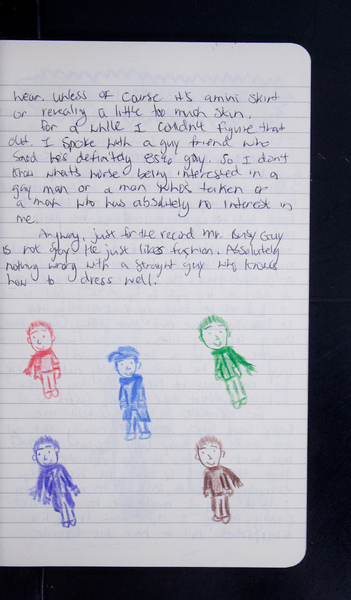 wear. Unless of course it's a mini skirt
or revealing a little too much skin.
For a while I couldn't figure that
out. I spoke with a guy friend who
said he's definitely 85% gay. So I don't
know what's worse being interested in a
gay man or a man who's taken or
a man who has absolutely no interest in
me.
Anyway, just for the record Mr. Busy Guy
is not gay. He just likes fashion. Absolutely
nothing wrong with a straight guy who knows
how to dress well.